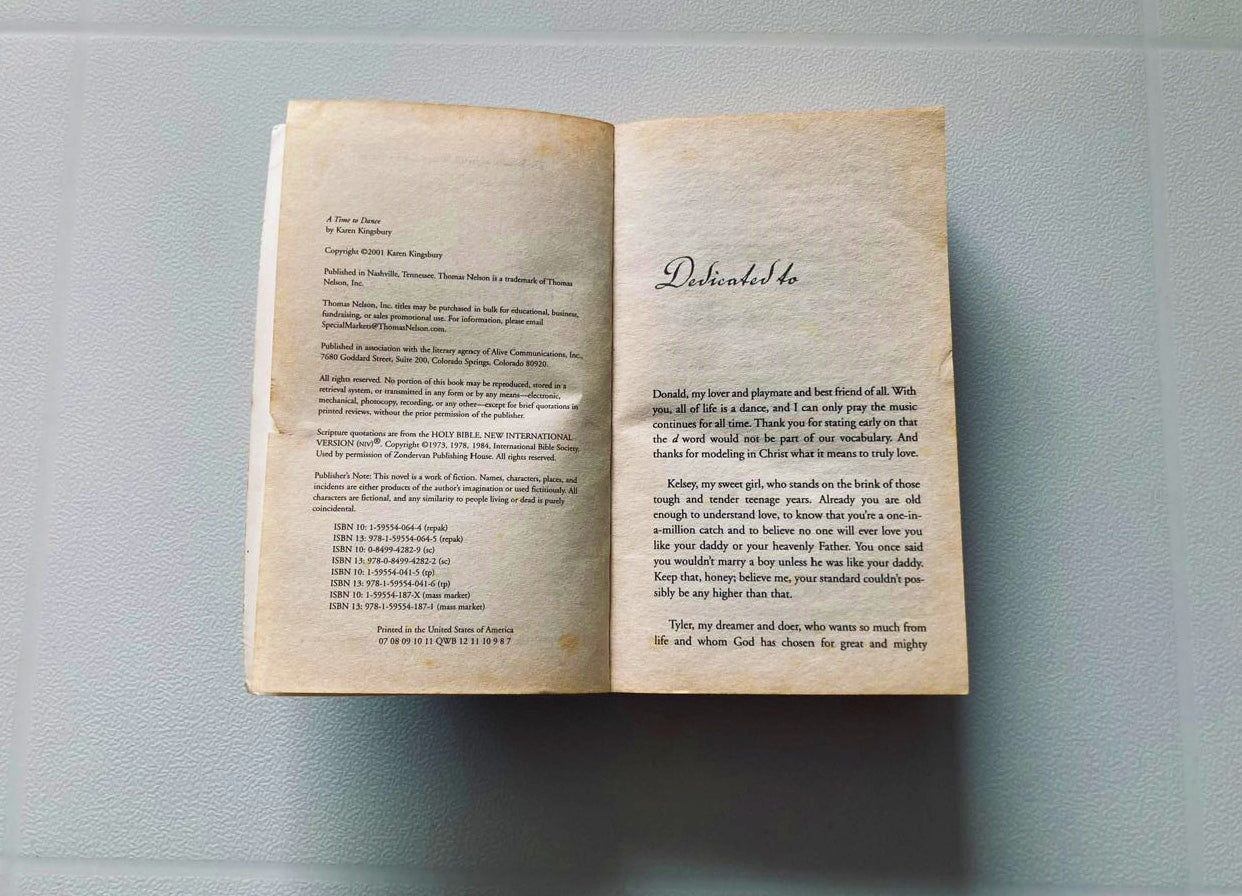 A Time to Dance
by Karen Kingsbury
Copyright ©2001 Karen Kingsbury
Published in Nashville, Tennessee. Thomas Nelson is a trademark of Thomas
Nelson, Inc.
Thomas Nelson, Inc. titles may be purchased in bulk for educational, business,
fundraising, or sales promotional use. For information, please email
SpecialMarkets@ThomasNelson.com.
Published in association with the literary agency of Alive Communications, Inc.,
7680 Goddard Street, Suite 200, Colorado Springs, Colorado 80920.
All rights reserved. No portion of this book may be reproduced, stored in a
retrieval system, or transmitted in any form or by any means—electronic,
mechanical, photocopy, recording, or any other—except for brief quotations in
printed reviews, without the prior permission of the publisher.
Scripture quotations are from the HOLY BIBLE, NEW INTERNATIONAL
VERSION (NIV)®. Copyright ©1973, 1978, 1984, International Bible Society.
Used by permission of Zondervan Publishing House. All rights reserved.
Publisher's Note: This novel is a work of fiction. Names, characters, places, and
incidents are either products of the author's imagination or used fictitiously. All
characters are fictional, and any similarity to people living or dead is purely
coincidental.
ISBN 10: 1-59554-064-4 (repak)
ISBN 13: 978-1-59554-064-5 (repak)
ISBN 10: 0-8499-4282-9 (sc)
ISBN 13: 978-0-8499-4282-2 (sc)
ISBN 10: 1-59554-041-5 (tp)
ISBN 13: 978-1-59554-041-6 (tp)
ISBN 10: 1-59554-187-X (mass market)
ISBN 13: 978-1-59554-187-1 (mass market)
Printed in the United States of America
07 08 09 10 11 QWB 12 11 10 9 8 7
Dedicated to
Donald, my lover and playmate and best friend of all. With
you, all of life is a dance, and I can only pray the music
continues for all time. Thank you for stating early on that
the d word would not be part of our vocabulary. And
thanks for modeling in Christ what it means to truly love.
Kelsey, my sweet girl, who stands on the brink of those
tough and tender teenage years. Already you are old
enough to understand love, to know that you're a one-in-
a-million catch and to believe no one will ever love you
like your daddy or your heavenly Father. You once said
you wouldn't marry a boy unless he was like your daddy.
Keep that, honey; believe me, your standard couldn't pos-
sibly be any higher than that.
Tyler, my dreamer and doer, who wants so much from
life and whom God has chosen for great and mighty